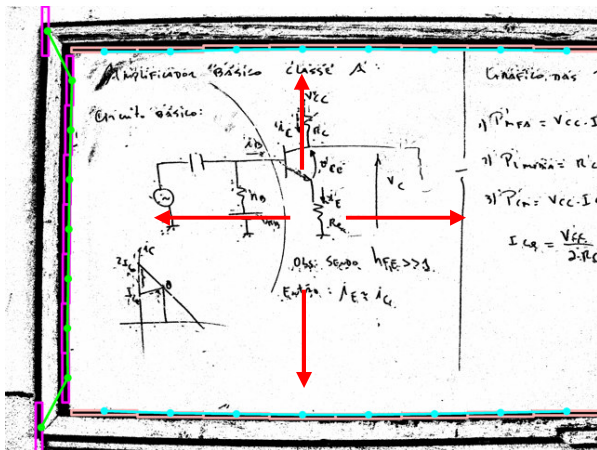 Amplificador Básico Classe A:
Circuito Básico:
Vcc
ic
Rc
iB
VCE
iE
RE
RB
VBB
Vc
~
Obs: Sendo hFE >> 1
Então: iE ≈ ic
ic
2ICQ
ICQ
Q
Gráfico das
1) PMFA = Vcc · I
2) PLMÉDIA = R'c
3) PCM = Vcc · IC
ICQ = Vcc
2·R